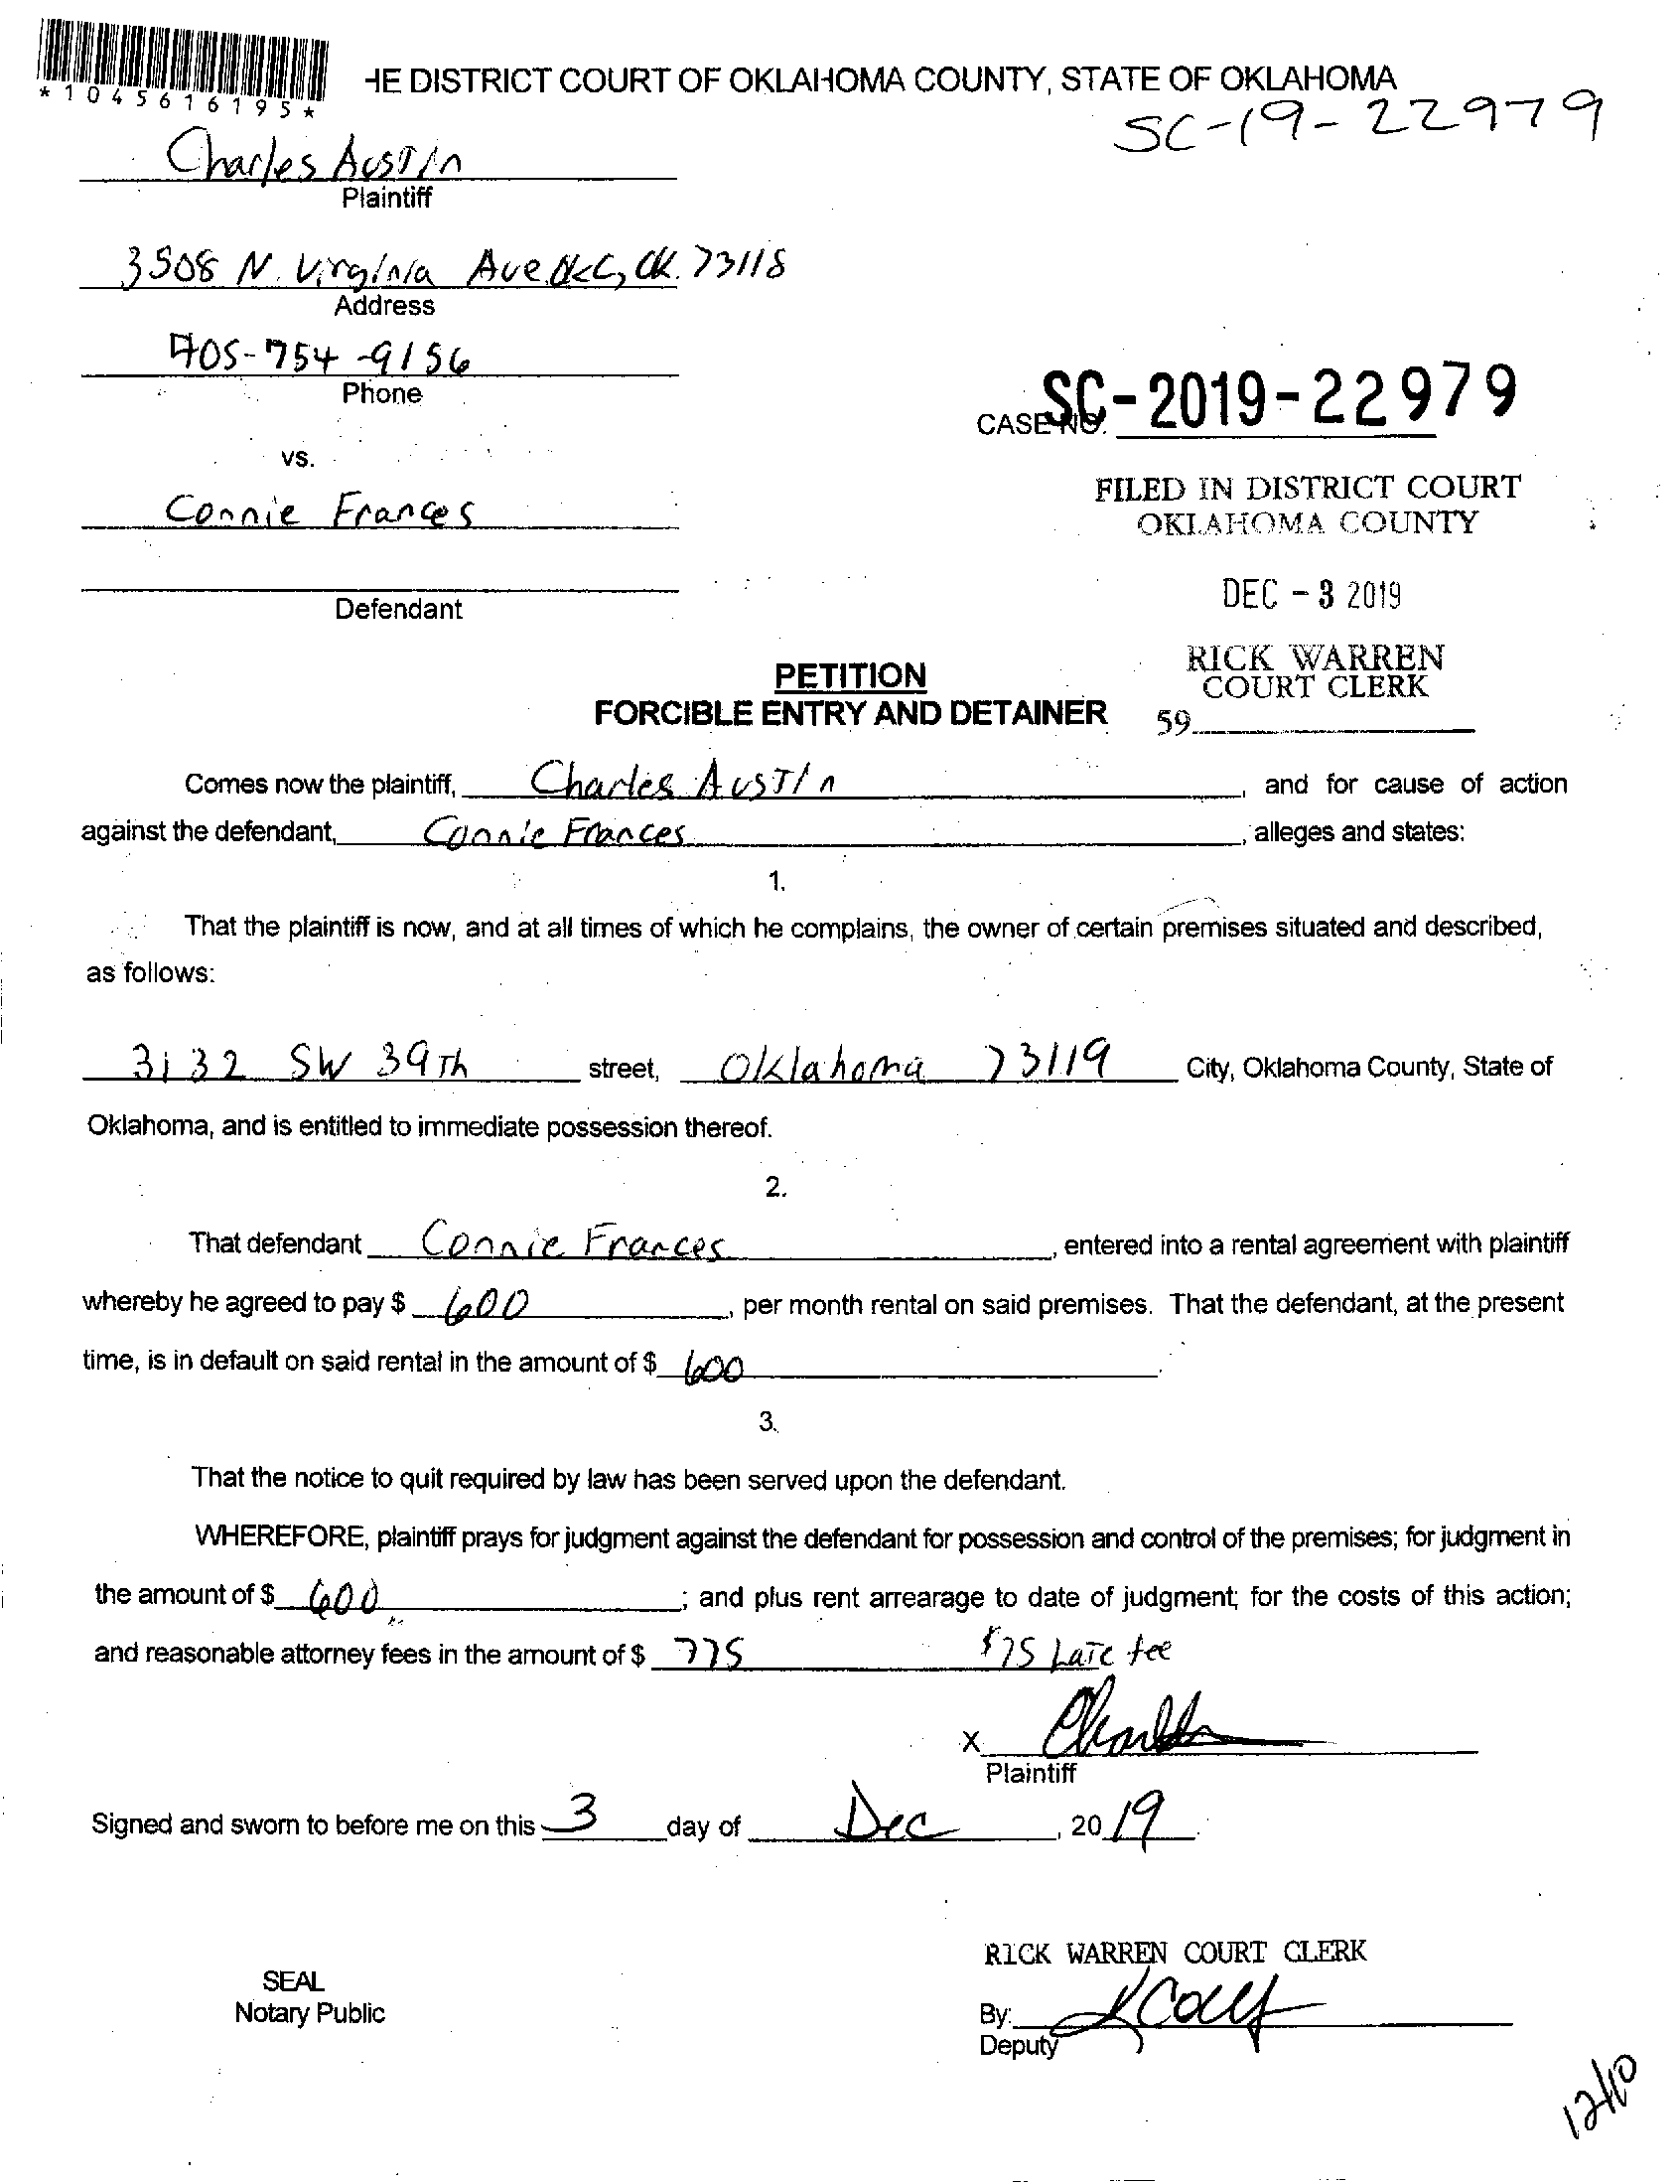 *1045616195*
HE DISTRICT COURT OF OKLAHOMA COUNTY, STATE OF OKLAHOMA
SC-19-22979
Charles Austin
Plaintiff
3508 N. Virginia Ave. OKC, OK. 73118
Address
405-754-9156
Phone
SC-2019-22979
CASE NO.
vs.
Connie Frances
FILED IN DISTRICT COURT
OKLAHOMA COUNTY
DEC - 3 2019
Defendant
RICK WARREN
COURT CLERK
59
PETITION
FORCIBLE ENTRY AND DETAINER
Comes now the plaintiff, Charles Austin, and for cause of action
against the defendant, Connie Frances, alleges and states:
1.
That the plaintiff is now, and at all times of which he complains, the owner of certain premises situated and described,
as follows:
3132 SW 39Th street, Oklahoma 73119 City, Oklahoma County, State of
Oklahoma, and is entitled to immediate possession thereof.
2.
That defendant Connie Frances, entered into a rental agreement with plaintiff
whereby he agreed to pay $ 600, per month rental on said premises. That the defendant, at the present
time, is in default on said rental in the amount of $ 600.
3.
That the notice to quit required by law has been served upon the defendant.
WHEREFORE, plaintiff prays for judgment against the defendant for possession and control of the premises; for judgment in
the amount of $ 600; and plus rent arrearage to date of judgment; for the costs of this action;
and reasonable attorney fees in the amount of $ 775 $75 Late fee
X
Plaintiff
Signed and sworn to before me on this 3 day of Dec, 2019.
RICK WARREN COURT CLERK
SEAL
Notary Public
By:
Deputy
12/10